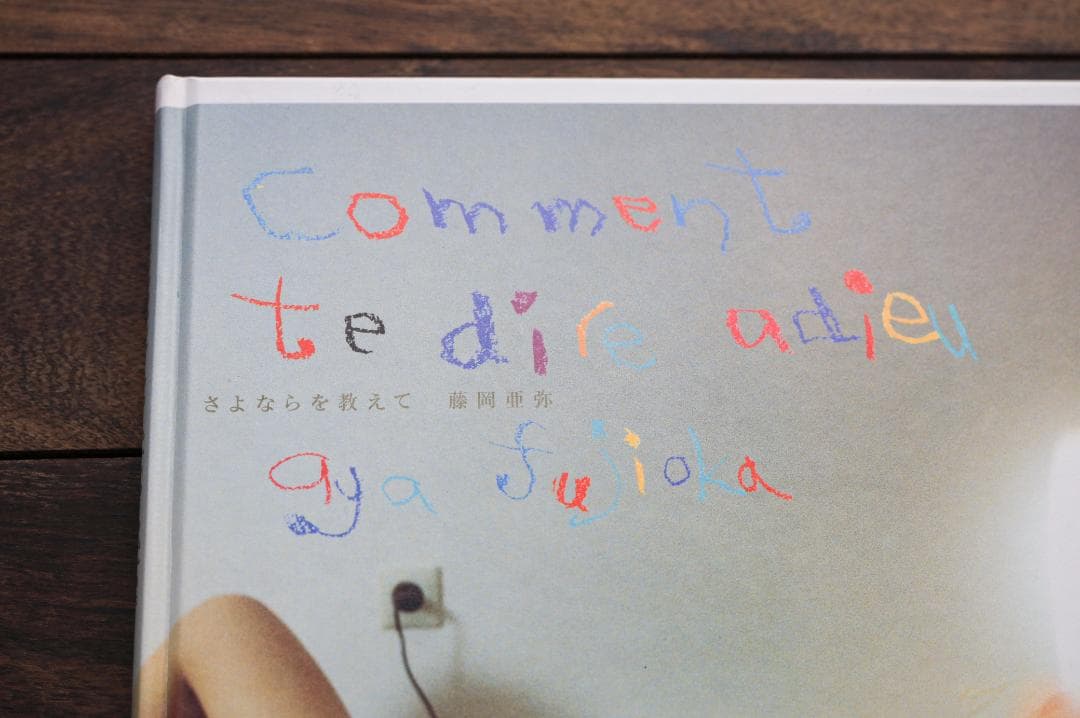 Comment
te dire adieu
さよならを教えて 藤岡亜弥
aya fujioka